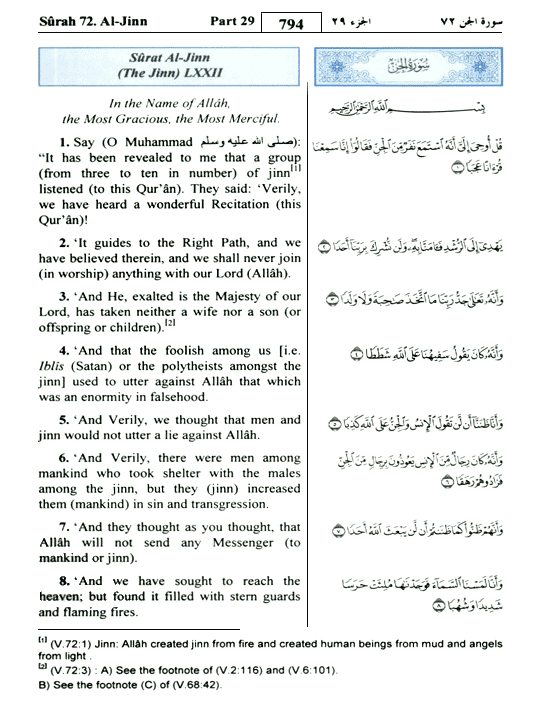 Sûrah 72. Al-Jinn Part 29 794 الجزء ٢٩ سورة الجن ٧٢
Sûrat Al-Jinn
(The Jinn) LXXII
In the Name of Allâh,
the Most Gracious, the Most Merciful.
1. Say (O Muhammad صلى الله عليه وسلم):
“It has been revealed to me that a group
(from three to ten in number) of jinn[1]
listened (to this Qur’ân). They said: ‘Verily,
we have heard a wonderful Recitation (this
Qur’ân)!
2. ‘It guides to the Right Path, and we
have believed therein, and we shall never join
(in worship) anything with our Lord (Allâh).
3. ‘And He, exalted is the Majesty of our
Lord, has taken neither a wife nor a son (or
offspring or children).[2]
4. ‘And that the foolish among us [i.e.
Iblis (Satan) or the polytheists amongst the
jinn] used to utter against Allâh that which
was an enormity in falsehood.
5. ‘And Verily, we thought that men and
jinn would not utter a lie against Allâh.
6. ‘And Verily, there were men among
mankind who took shelter with the males
among the jinn, but they (jinn) increased
them (mankind) in sin and transgression.
7. ‘And they thought as you thought, that
Allâh will not send any Messenger (to
mankind or jinn).
8. ‘And we have sought to reach the
heaven; but found it filled with stern guards
and flaming fires.
سُورَةُ الجِنِّ
بِسْمِ اللَّهِ الرَّحْمَٰنِ الرَّحِيمِ
قُلْ أُوحِيَ إِلَيَّ أَنَّهُ اسْتَمَعَ نَفَرٌ مِّنَ الْجِنِّ فَقَالُوا إِنَّا سَمِعْنَا
قُرْءَانًا عَجَبًا ١
يَهْدِي إِلَى الرُّشْدِ فَـَٔامَنَّا بِهِ وَلَن نُّشْرِكَ بِرَبِّنَا أَحَدًا ٢
وَأَنَّهُ تَعَالَىٰ جَدُّ رَبِّنَا مَا اتَّخَذَ صَاحِبَةً وَلَا وَلَدًا ٣
وَأَنَّهُ كَانَ يَقُولُ سَفِيهُنَا عَلَى اللَّهِ شَطَطًا ٤
وَأَنَّا ظَنَنَّا أَن لَّن تَقُولَ الْإِنسُ وَالْجِنُّ عَلَى اللَّهِ كَذِبًا ٥
وَأَنَّهُ كَانَ رِجَالٌ مِّنَ الْإِنسِ يَعُوذُونَ بِرِجَالٍ مِّنَ الْجِنِّ
فَزَادُوهُمْ رَهَقًا ٦
وَأَنَّهُمْ ظَنُّوا كَمَا ظَنَنتُمْ أَن لَّن يَبْعَثَ اللَّهُ أَحَدًا ٧
وَأَنَّا لَمَسْنَا السَّمَاءَ فَوَجَدْنَاهَا مُلِئَتْ حَرَسًا
شَدِيدًا وَشُهُبًا ٨
[1] (V.72:1) Jinn: Allâh created jinn from fire and created human beings from mud and angels
from light .
[2] (V.72:3) : A) See the footnote of (V.2:116) and (V.6:101).
B) See the footnote (C) of (V.68:42).